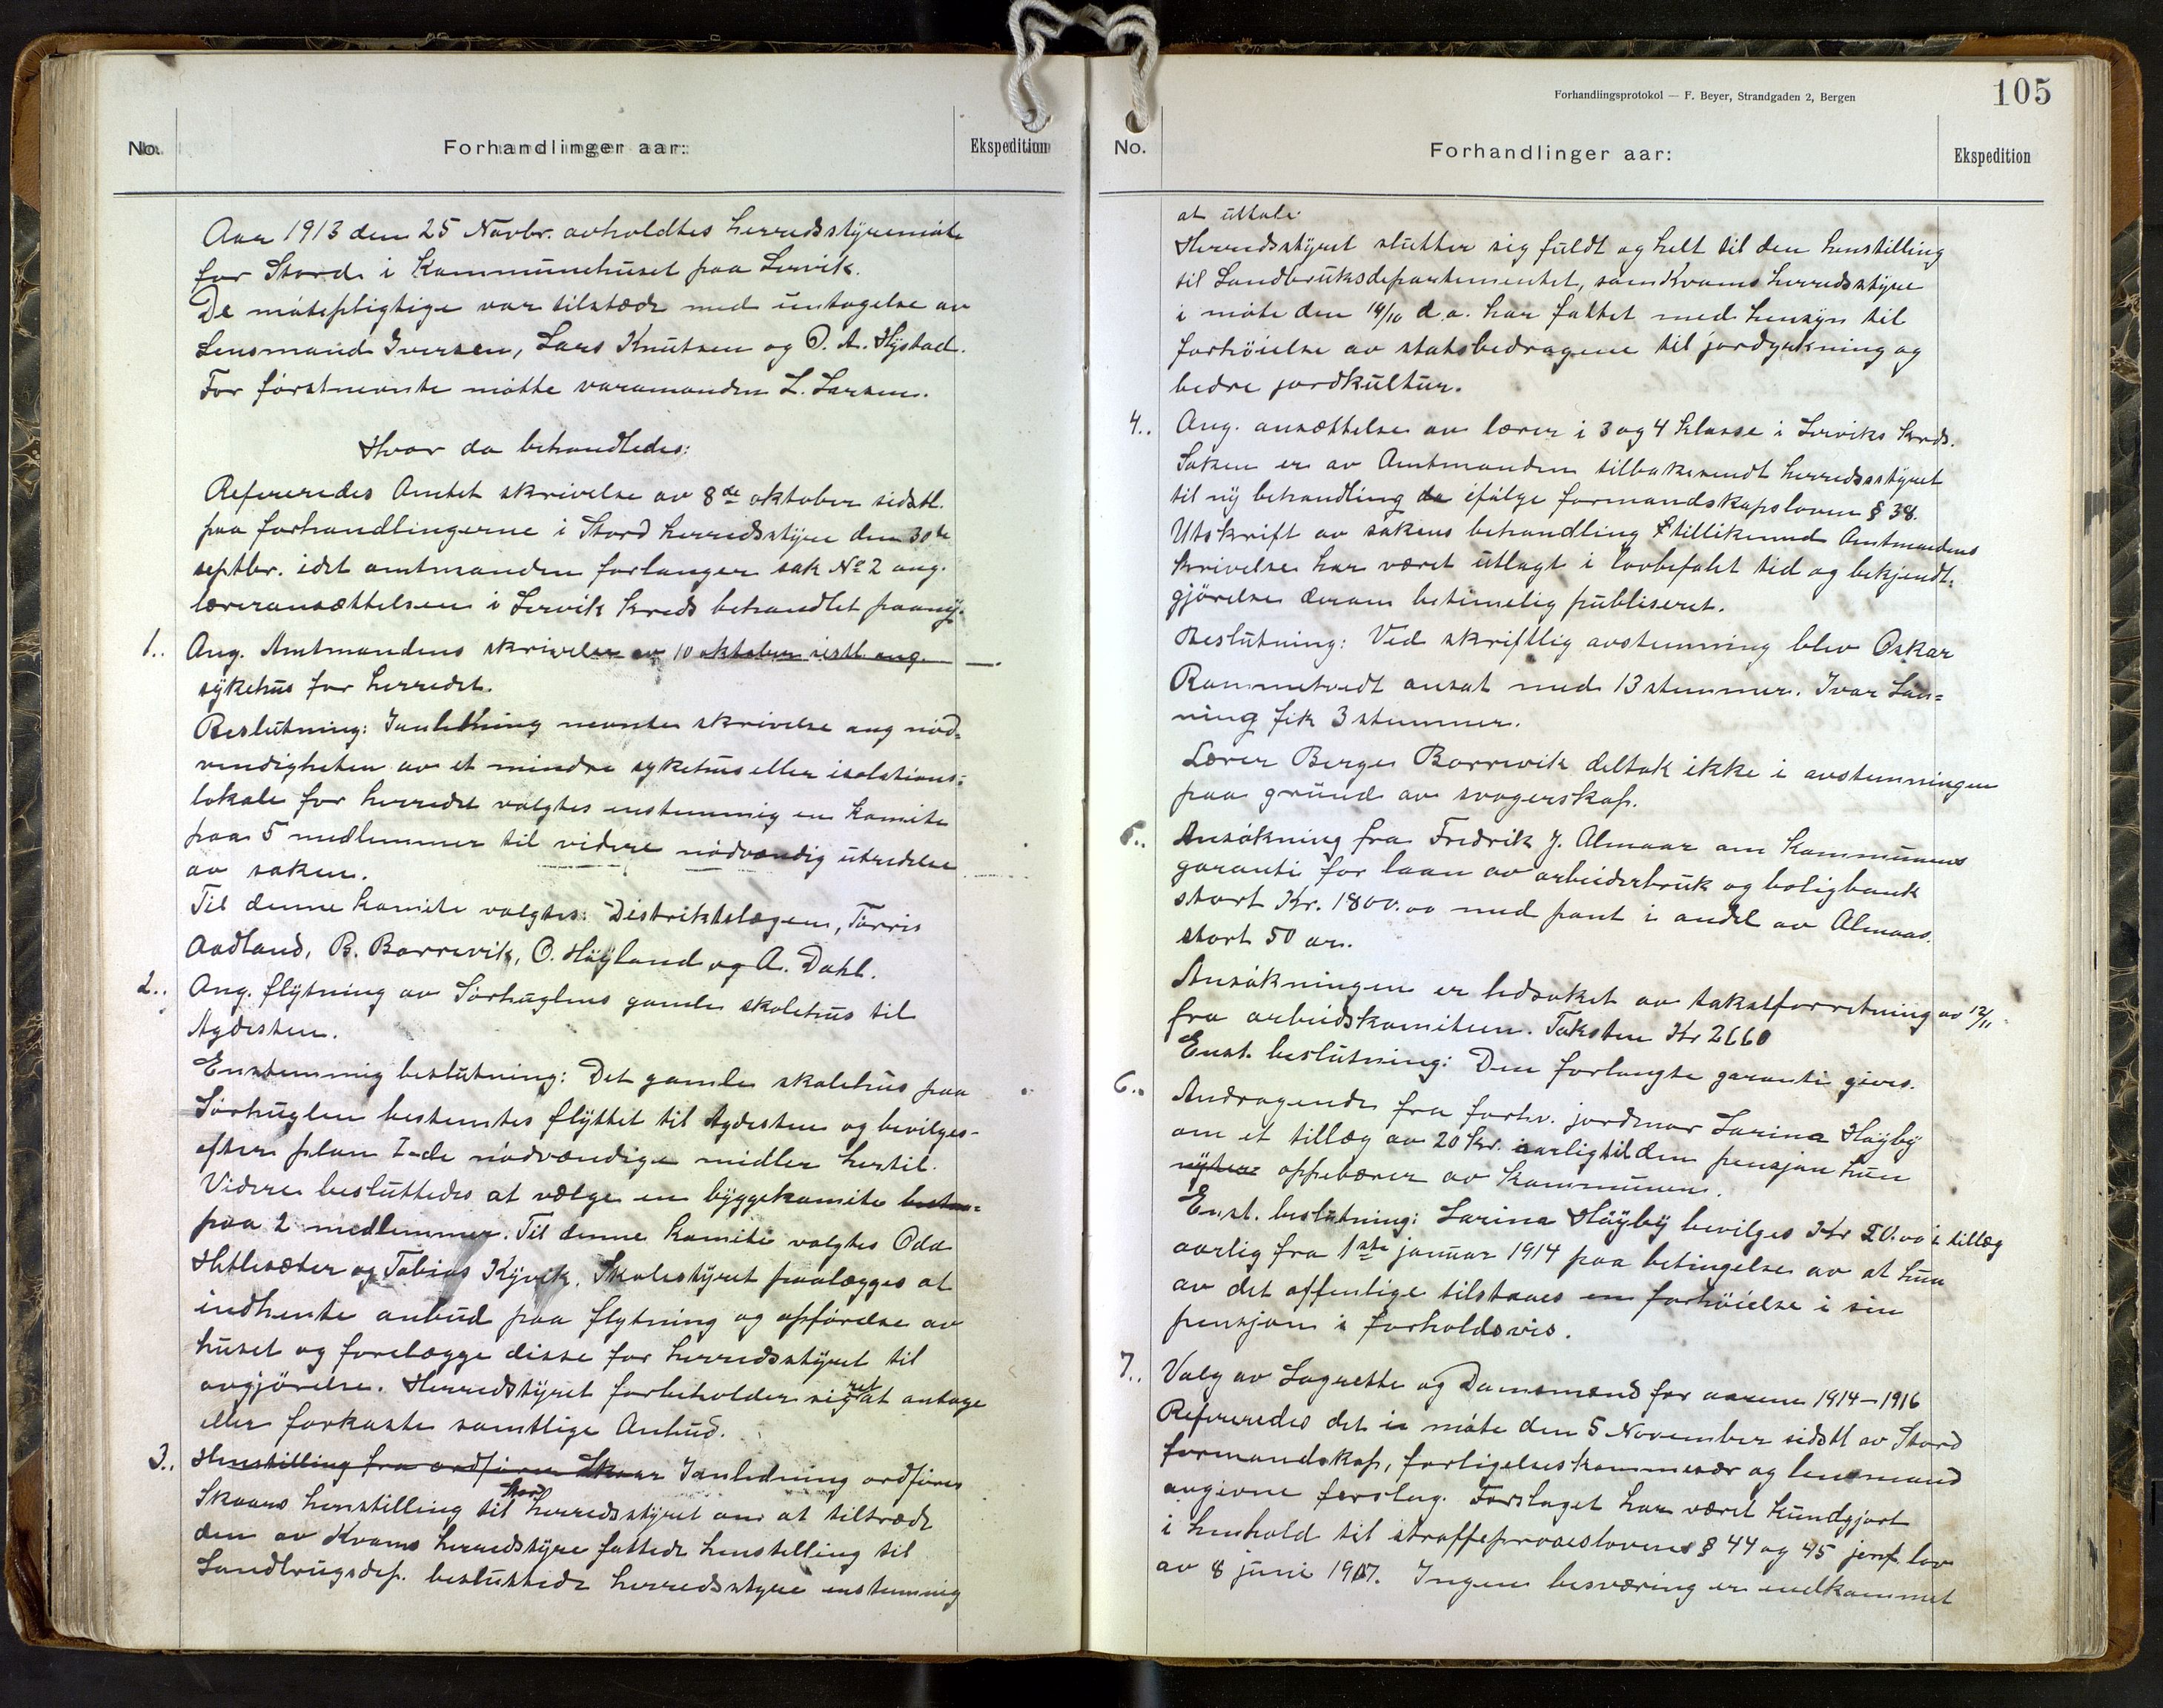 No.
Forhandlinger aar:
Ekspedition
Aar 1913 den 25 Novbr. avholdtes herredsstyremøte
for Stord i Kommunehuset paa Lervik.
De møtepligtige var tilstæde med untagelse av
Lensmand Iversen, Lars Knutsen og O. A. Hystad.
For førstnevnte møtte varamanden L. Larsen.
Hvor da behandledes:
Refereredes Amtet skrivelse av 8de oktober sidstl.
paa forhandlingerne i Stord herredsstyre den 30te
septbr. idet amtmanden forlanger sak No 2 ang.
læreransættelsen i Lervik kreds behandlet paany.
1.. Ang. Amtmandens skrivelse av 10 oktober sistl. ang.
sykehus for herredet.
Beslutning: I anledning nevnte skrivelse ang nød-
vendigheten av et mindre sykehus eller isolations-
lokale for herredet valgtes enstemmig en komite
paa 5 medlemmer til videre nødvændig utredelse
av saken.
Til denne komite valgtes: Distriktslægen, Tørris
Aadland, B. Borrevik, O. Høyland og A. Dahl.
2.. Ang. flytning av Sørhuglens gamle skolehus til
Agdesten.
Enstemmig beslutning: Det gamle skolehus paa
Sørhuglen bestemtes flyttet til Agdesten og bevilges
efter plan I de nødvændige midler hertil.
Videre besluttedes at vælge en byggekomite
paa 2 medlemmer. Til denne komite valgtes Odd
Hetlesæter og Tobias Kyvik. Skolestyret paalægges at
indhente anbud paa flytning og opførelse av
huset og forelægge disse for herredsstyret til
avgjørelse. Herredstyret forbeholder sig ret at antage
eller forkaste samtlige Anbud.
3.. Henstilling fra ordfører Skaar I anledning ordfører
Skaars henstilling til Stord herredsstyret om at tiltræde
den av Kvams herredstyre fattede henstilling til
Landbrugsdep. besluttede herredsstyre enstemmig
Forhandlingsprotokol — F. Beyer, Strandgaden 2, Bergen
105
No.
Forhandlinger aar:
Ekspedition
at uttale:
Herredsstyret slutter sig fuldt og helt til den henstilling
til Landbruksdepartementet, som Kvams herredsstyre
i møte den 14/10 d.a. har fattet med hensyn til
forhøielse av statsbedragene til jorddyrkning og
bedre jordkultur.
4.. Ang. ansættelse av lærer i 3 og 4 klasse i Lerviks krds.
Saken er av Amtmanden tilbakesendt herredsstyret
til ny behandling ifølge formandskapsloven § 38.
Utskrift av sakens behandling tillikemed Amtmandens
skrivelse har været utlagt i lovbefalet tid og bekjendt-
gjørelse derom betimelig publiseret.
Beslutning: Ved skriftlig avstemning blev Oskar
Rommetvedt ansat med 13 stemmer. Ivar Løn-
ning fik 3 stemmer.
Lærer Berge Borrevik deltok ikke i avstemningen
paa grund av svogerskap.
5.. Ansøkning fra Fredrik J. Almaas om Kommunens
garanti for laan av arbeiderbruk og boligbank
stort Kr. 1800.00 med pant i andel av Almaas
stort 50 ar.
Ansøkningen er ledsaket av takstforretning av 12/11
fra arbeidskomiteen. Taksten Kr 2660
Enst. beslutning: Den forlangte garanti gives.
6.. Andragende fra forhv. jordmor Larina Høyby
om et tillæg av 20 kr. aarlig til den pensjon hun
nyter oppebærer av kommunen.
Enst. beslutning: Larina Høyby bevilges Kr 20.00 i tillæg
aarlig fra 1ste januar 1914 paa betingelse av at hun
av det offentlige tilstaaes en forhøielse i sin
pensjon i forholdsvis.
7.. Valg av Lagrette og Domsmænd for aarene 1914–1916
Refereredes det i møte den 5 November sidstl av Stord
formandskap, forligelseskommesær og lensmand
angivne forslag. Forslaget har været kundgjort
i henhold til straffeproceslovens § 44 og 45 jevnf. lov
av 8 juni 1907. Ingen besværing er indkommet